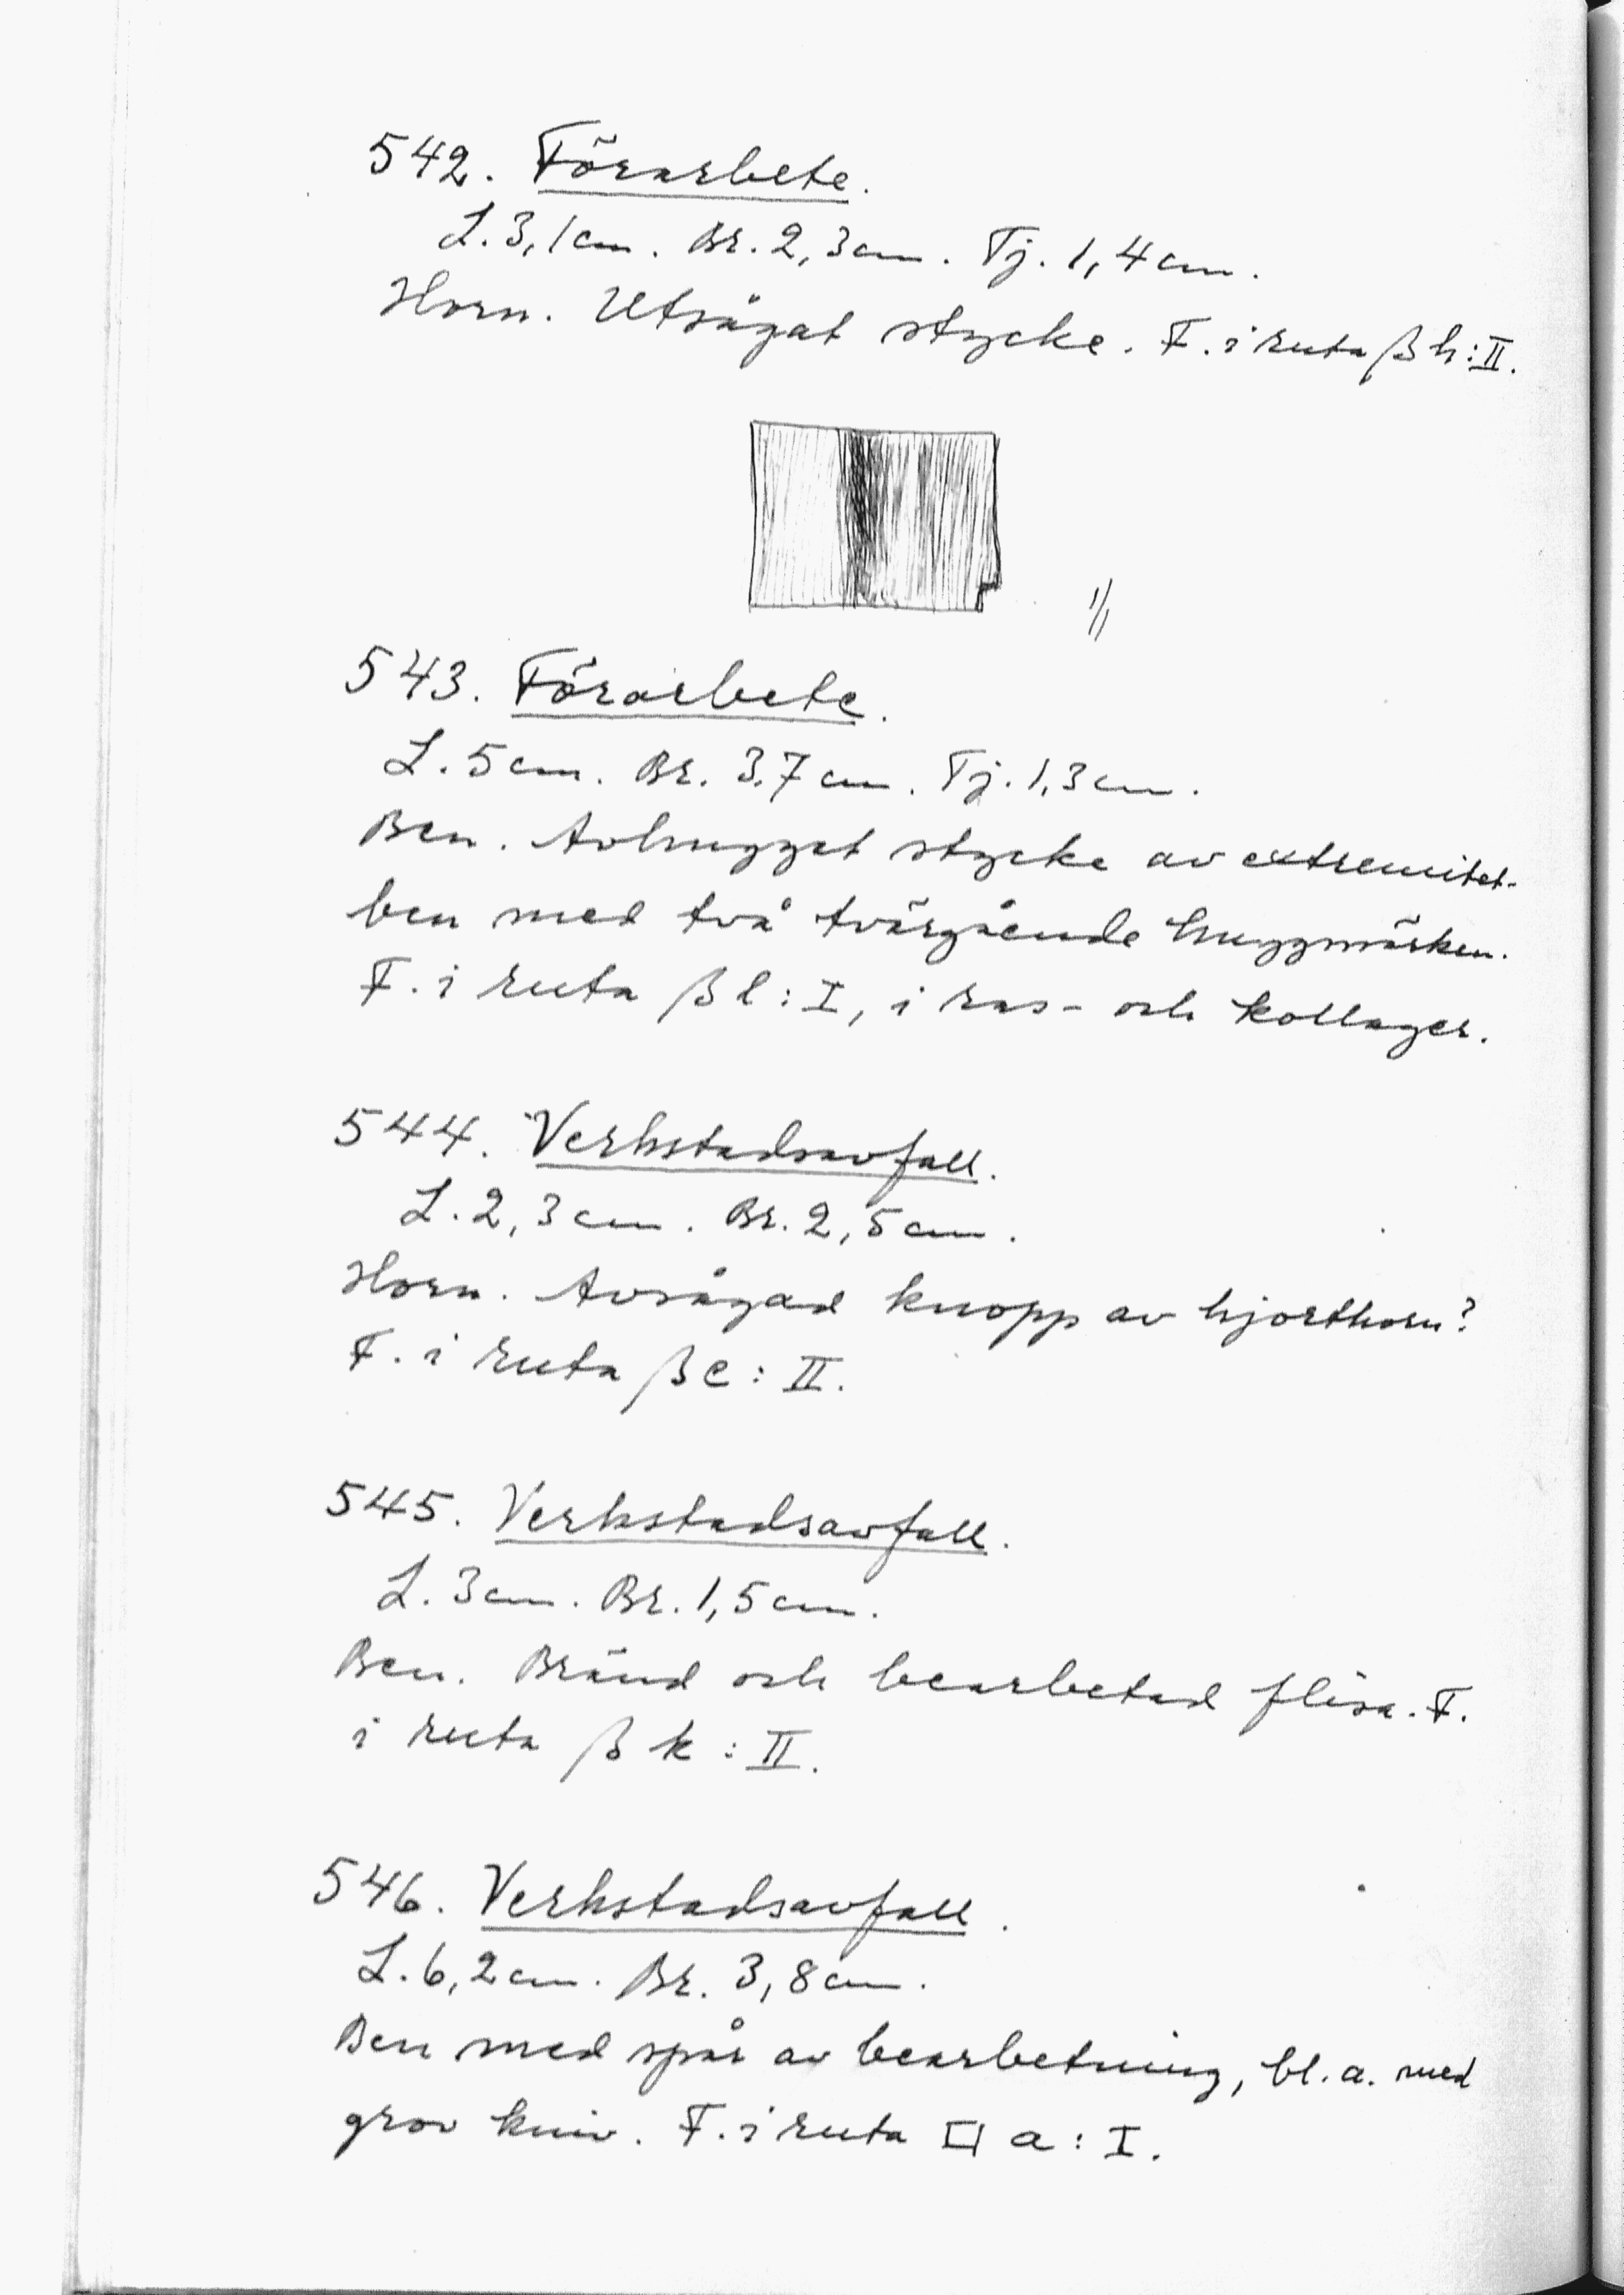 542. Förarbete.
L. 3,1 cm. Br. 2,3 cm. Tj. 1,4 cm.
Horn. Utsågat stycke. F. i ruta β h : II.
1/1
543. Förarbete.
L. 5 cm. Br. 3.7 cm. Tj. 1,3 cm.
Ben. Avhugget stycke av extremitet-
ben med två tvärgående huggmärken.
F. i ruta β l : I, i ras- och kollager.
544. Verkstadsavfall.
L. 2,3 cm. Br. 2,5 cm.
Horn. Avsågad knopp av hjorthorn?
F. i ruta β e : II.
545. Verkstadsavfall.
L. 3 cm. Br. 1,5 cm.
Ben. Bränd och bearbetad flisa. F.
i ruta β k : II.
546. Verkstadsavfall.
L. 6,2 cm. Br. 3,8 cm.
Ben med spår av bearbetning, bl. a. med
grov kniv. F. i ruta □ a : I.